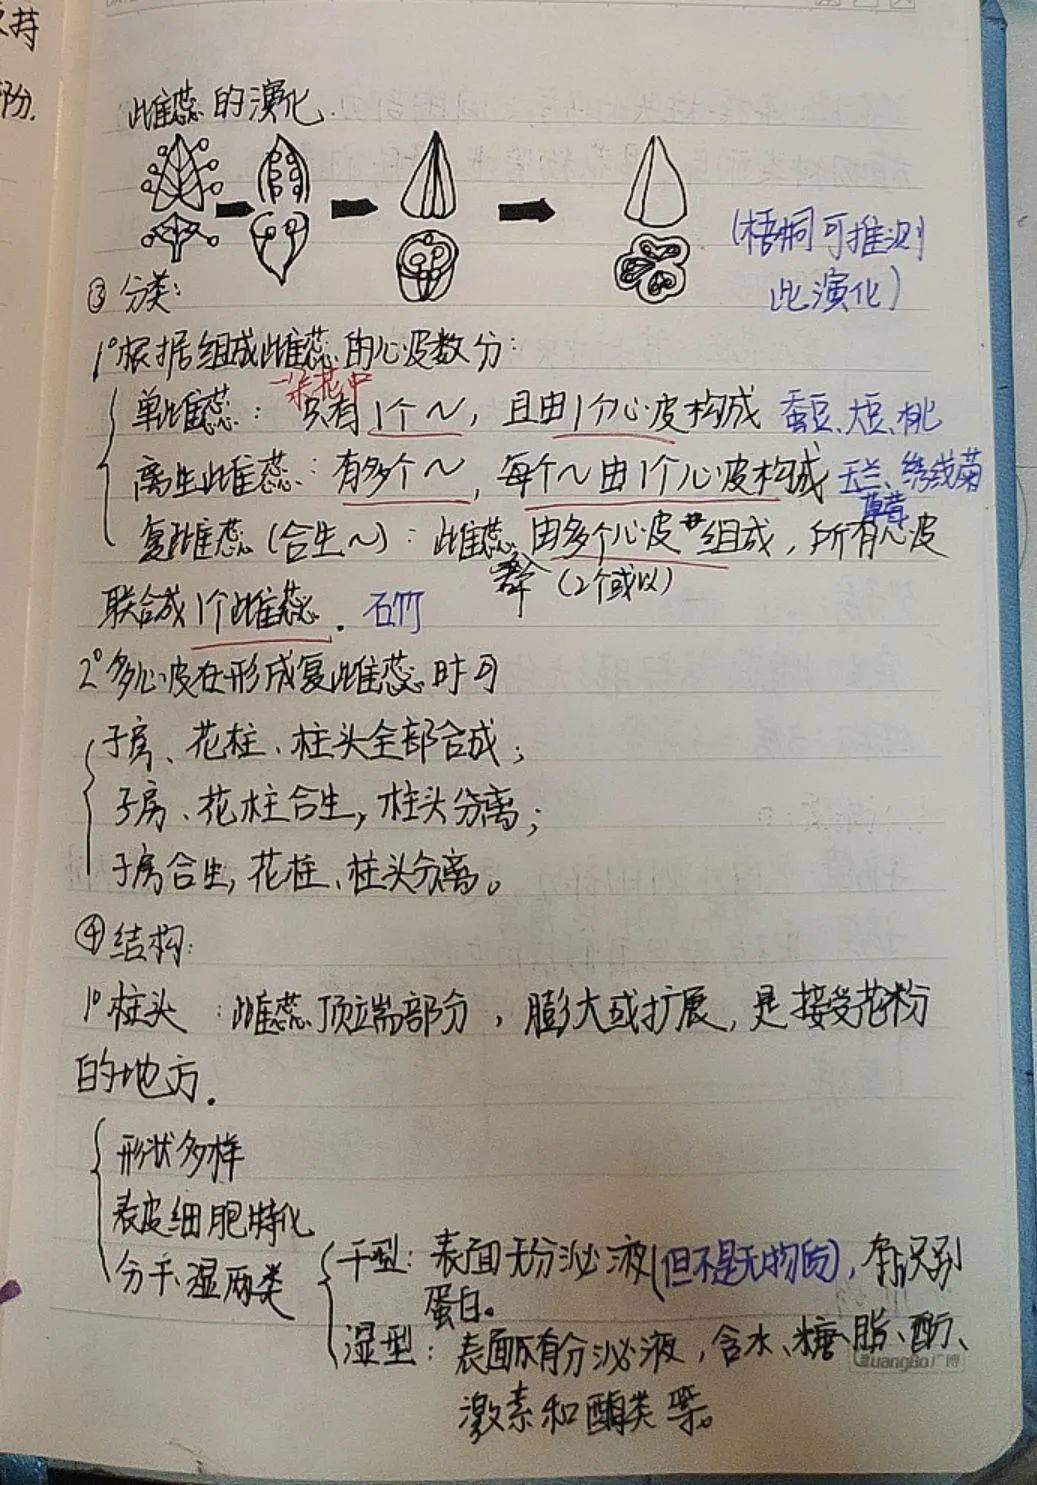 持
部分.
雌蕊的演化.
(梧桐可推测
此演化)
③ 分类:
1°根据组成雌蕊的心皮数分:
一朵花中
单雌蕊: 只有1个~, 且由1个心皮构成 蚕豆、大豆、桃
离生雌蕊: 有多个~, 每个~由1个心皮构成 玉兰、绣线菊
草莓
复雌蕊(合生~): 雌蕊由多个心皮组成, 所有心皮
(2个或以)
联合成1个雌蕊. 石竹
2°多心皮在形成复雌蕊时可
子房、花柱、柱头全部合成;
子房、花柱合生, 柱头分离;
子房合生, 花柱、柱头分离。
④ 结构:
1°柱头: 雌蕊顶端部分, 膨大或扩展, 是接受花粉
的地方.
形状多样
表皮细胞特化
分干、湿两类
干型: 表面无分泌液(但不是无物质), 有识别
蛋白。
湿型: 表面有分泌液, 含水、糖、脂、酚、
GuangBo广博
激素和酶类等。